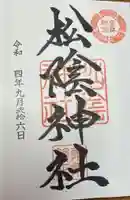 松陰神社
令和四年九月弐拾六日